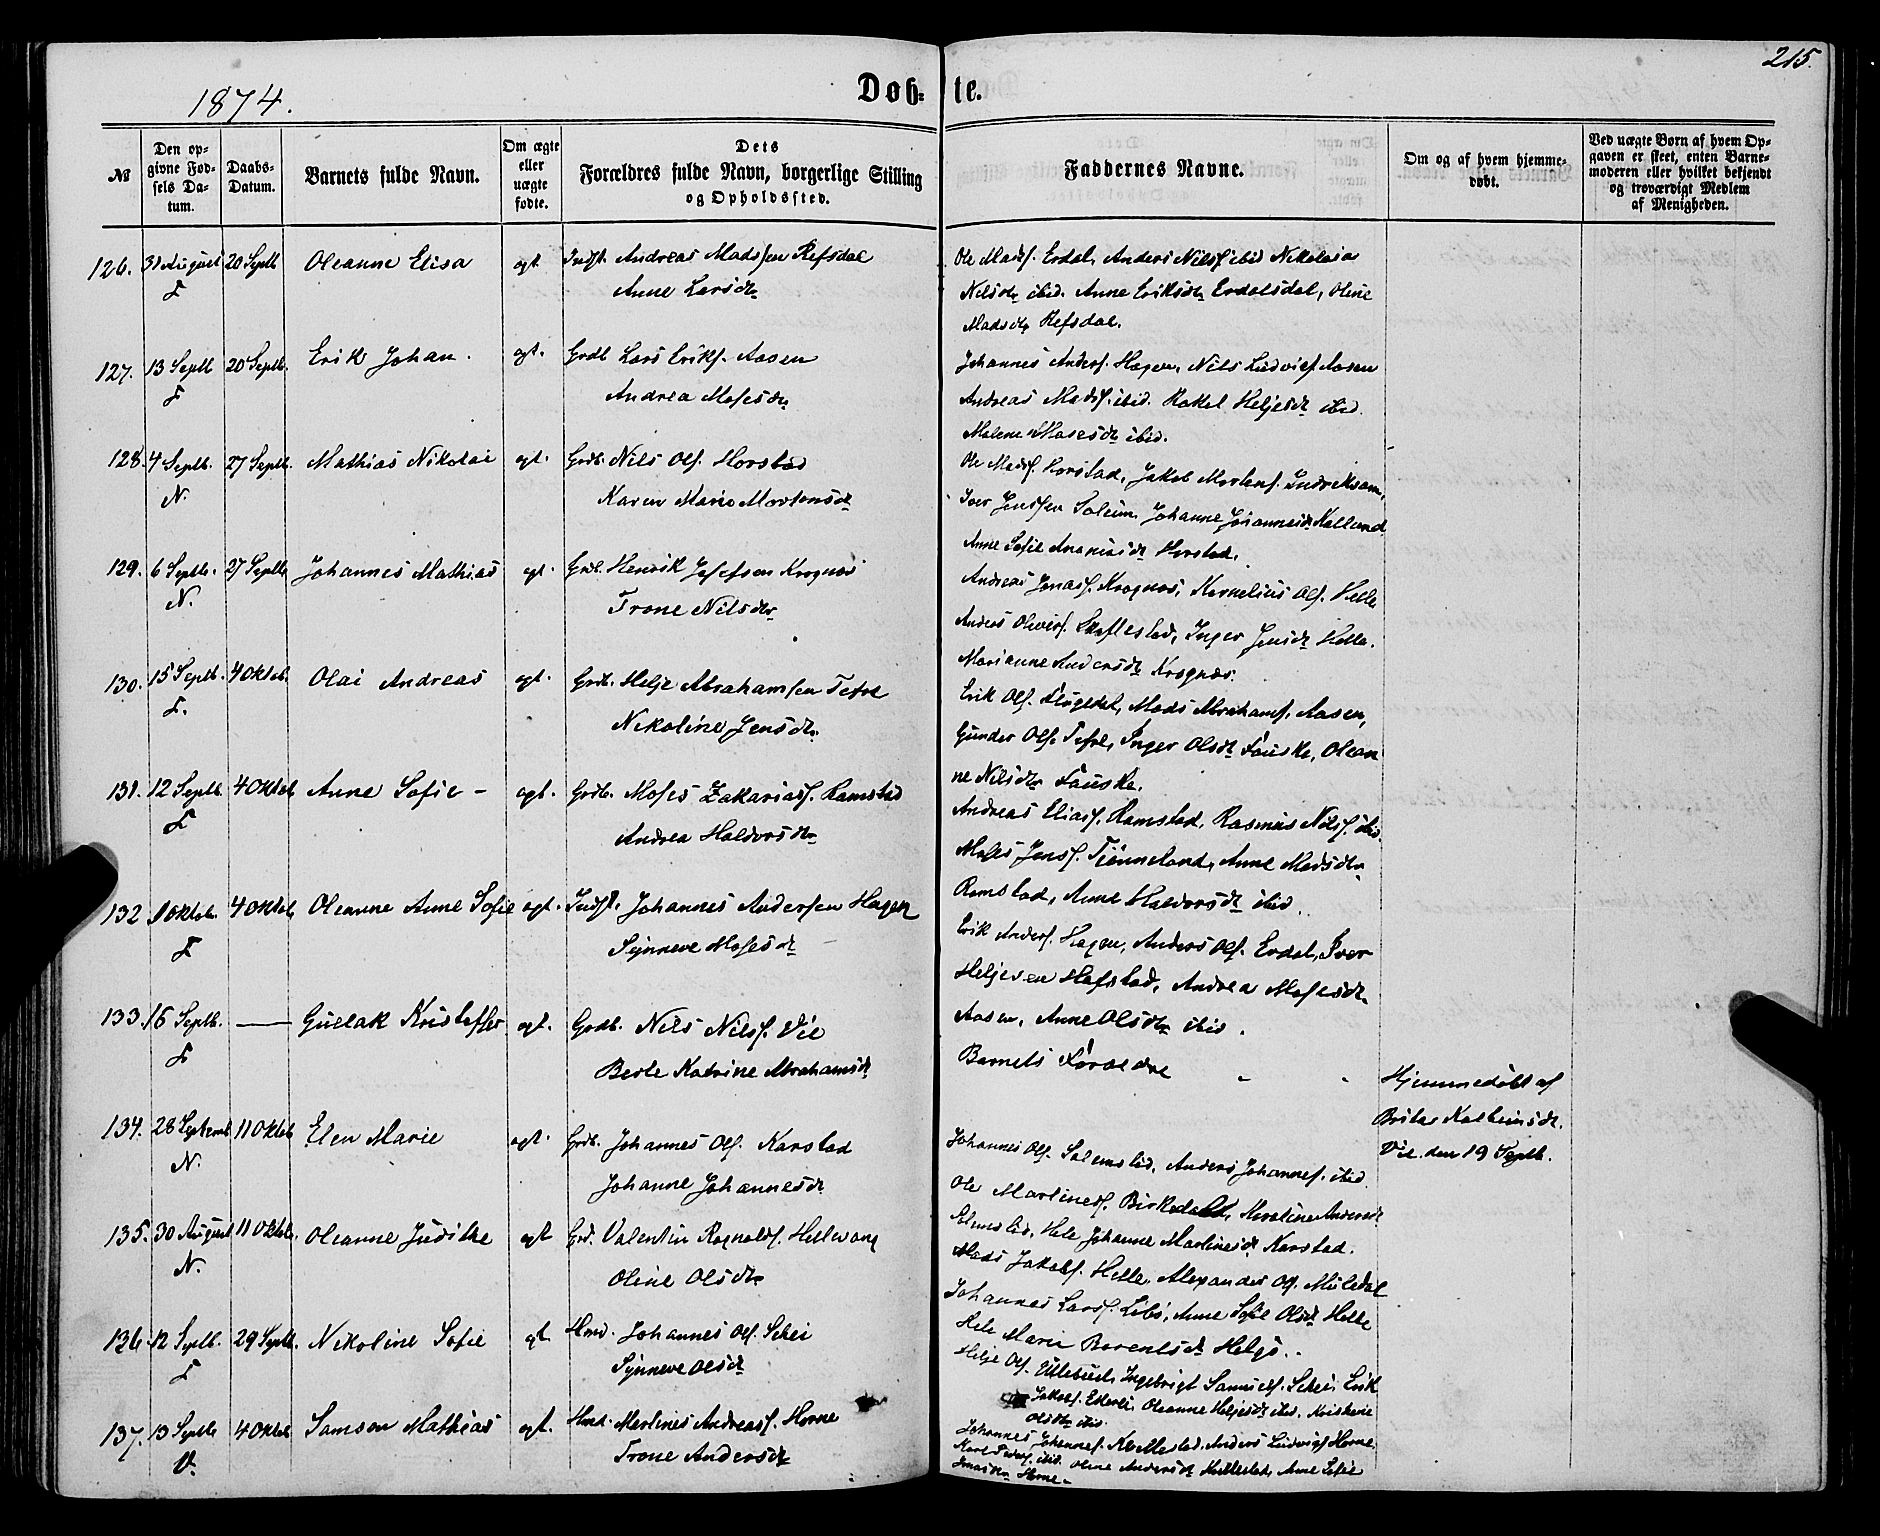 215.
1874.
Døb- te.
№
Den opgivne Fødsels Datum.
Daabs-Datum.
Barnets fulde Navn.
Om ægte eller uægte fødte.
Dets Forældres fulde Navn, borgerlige Stilling og Opholdssted.
Faddernes Navne.
Om og af hvem hjemmedøbt.
Ved uægte Børn af hvem Opgaven er skeet, enten Barnemoderen eller hvilket bekjendt og troværdigt Medlem af Menigheden.
126. 31 August 20 Septb Oleanne Elisa ægt. Indst. Andreas Madssen Refsdal
Anne Larsdtr
Ole Madsf. Erdal, Anders Nilsf ibid Nikolaia
Nilsdtr ibid. Anne Eriksdtr Erdalsdal, Oline
Madsdtr Refsdal.
127. 13 Septb 20 Septb. Erik Johan. ægt. Grdb Lars Eriks. Aasen
Andrea Mosesdtr
Johannes Andersf. Hagen, Nils Ludvigsf Aasen
Andreas Madsf. ibid. Rakel Heljesdtr ibid.
Malene Mosesdtr ibid.
128. 4 Septb. 27 Septb. Mathias Nikolai ægt. Grdb. Nils Olsf. Horstad
N. Karen Marie Mortensdtr
Ole Madsf. Horstad, Jakob Mortensf. Indreksam,
Iver Jenssen Soleim, Johanne Johannesdtr Kalland
Anne Sofie Ananiasdtr Horstad.
129. 6 Septb. 27 Septb Johannes Mathias ægt. Grdb. Henrik Josefsen Krognæs
N. Trone Nilsdtr
Andreas Jonasf. Krognæs, Kornelius Olsf. Helle
Anders Oliversf. Skaflestad, Inger Jensdtr Helle.
Marianne Andersdtr Krognæs.
130. 15 Septb. 4 Oktob. Olai Andreas ægt. Grdb. Helje Abrahamsen Tefre
Nikoline Jensdtr.
Erik Olsf. Flugedal, Mads Abrahamsf. Aasen,
Gunder Olsf. Tefre, Inger Olsdtr Fauske, Olean
ne Nilsdtr Fauske.
131. 12 Septb. 4 Oktob Anne Sofie - ægt. Grdb. Moses Zakariasf. Ramstad
Andrea Haldorsdtr
Andreas Eliasf. Ramstad, Rasmus Nilsf. ibid.
Moses Jensf. Tjønneland, Anne Madsdtr
Ramstad, Anne Haldorsdtr ibid.
132 1 Oktob. 4 Oktob Oleanne Anne Sofie ægt. Indst. Johannes Andersen Hagen
Synneve Mosesdtr
Erik Andersf. Hagen, Anders Olsf. Erdal, Iver
Heljesen Hafstad, Andrea Mosesdtr
Aasen, Anne Olsdtr ibid.
133. 16 Septb. — Gullak Kristoffer ægt. Grdb. Nils Nilsf. Vie
Berte Katrine Abrahamsdtr
Barnets Forældre
Hjemmedøbt af
Brita Kolbeinsdtr.
Vie. den 19 Septb.
134. 28 Septemb 11 Oktob Elen Marie ægt. Grdb. Johannes Olsf. Karstad
N. Johanne Johannesdtr
Johannes Olsf. Solemslid, Anders Johannesf. ibid
Ole Martinesf. Birkedal, Karoline Andersdtr
Solemslid, Hele Johanne Martinesdtr Karstad.
135. 30 August 11 Oktob. Oleanne Judithe ægt Grd. Valentin Ragnaldsf. Hellevang
N. Oline Olsdtr
Mads Jakobsf. Helle, Alexander Olsf. Muledal
Johannes Larsf. Libø, Anne Sofie Olsdtr Helle
Hele Marie Berentsdtr Helge.
136. 12 Septb. 29 Septb. Nikoline Sofie ægt Hmd. Johannes Olsf. Schei
Synneve Olsdtr
Helje Olsf. Ullebust, Ingebrigt Samuelsf. Schei, Erik
Jakobsf. Oleanne Heljesdtr ibid. Kristine
Olsdtr ibid.
137. 13 Septb 4 Oktob Samson Mathias ægt. Hmd. Martines Andreasf. Horne
V. Trone Andersdtr
Johannes Johannesf. Kvellestad. Anders Ludvigsf Horne.
Karl Pedersf. ibid. Oline Andersdtr Kvellestad, Anne Sofie
Horne -